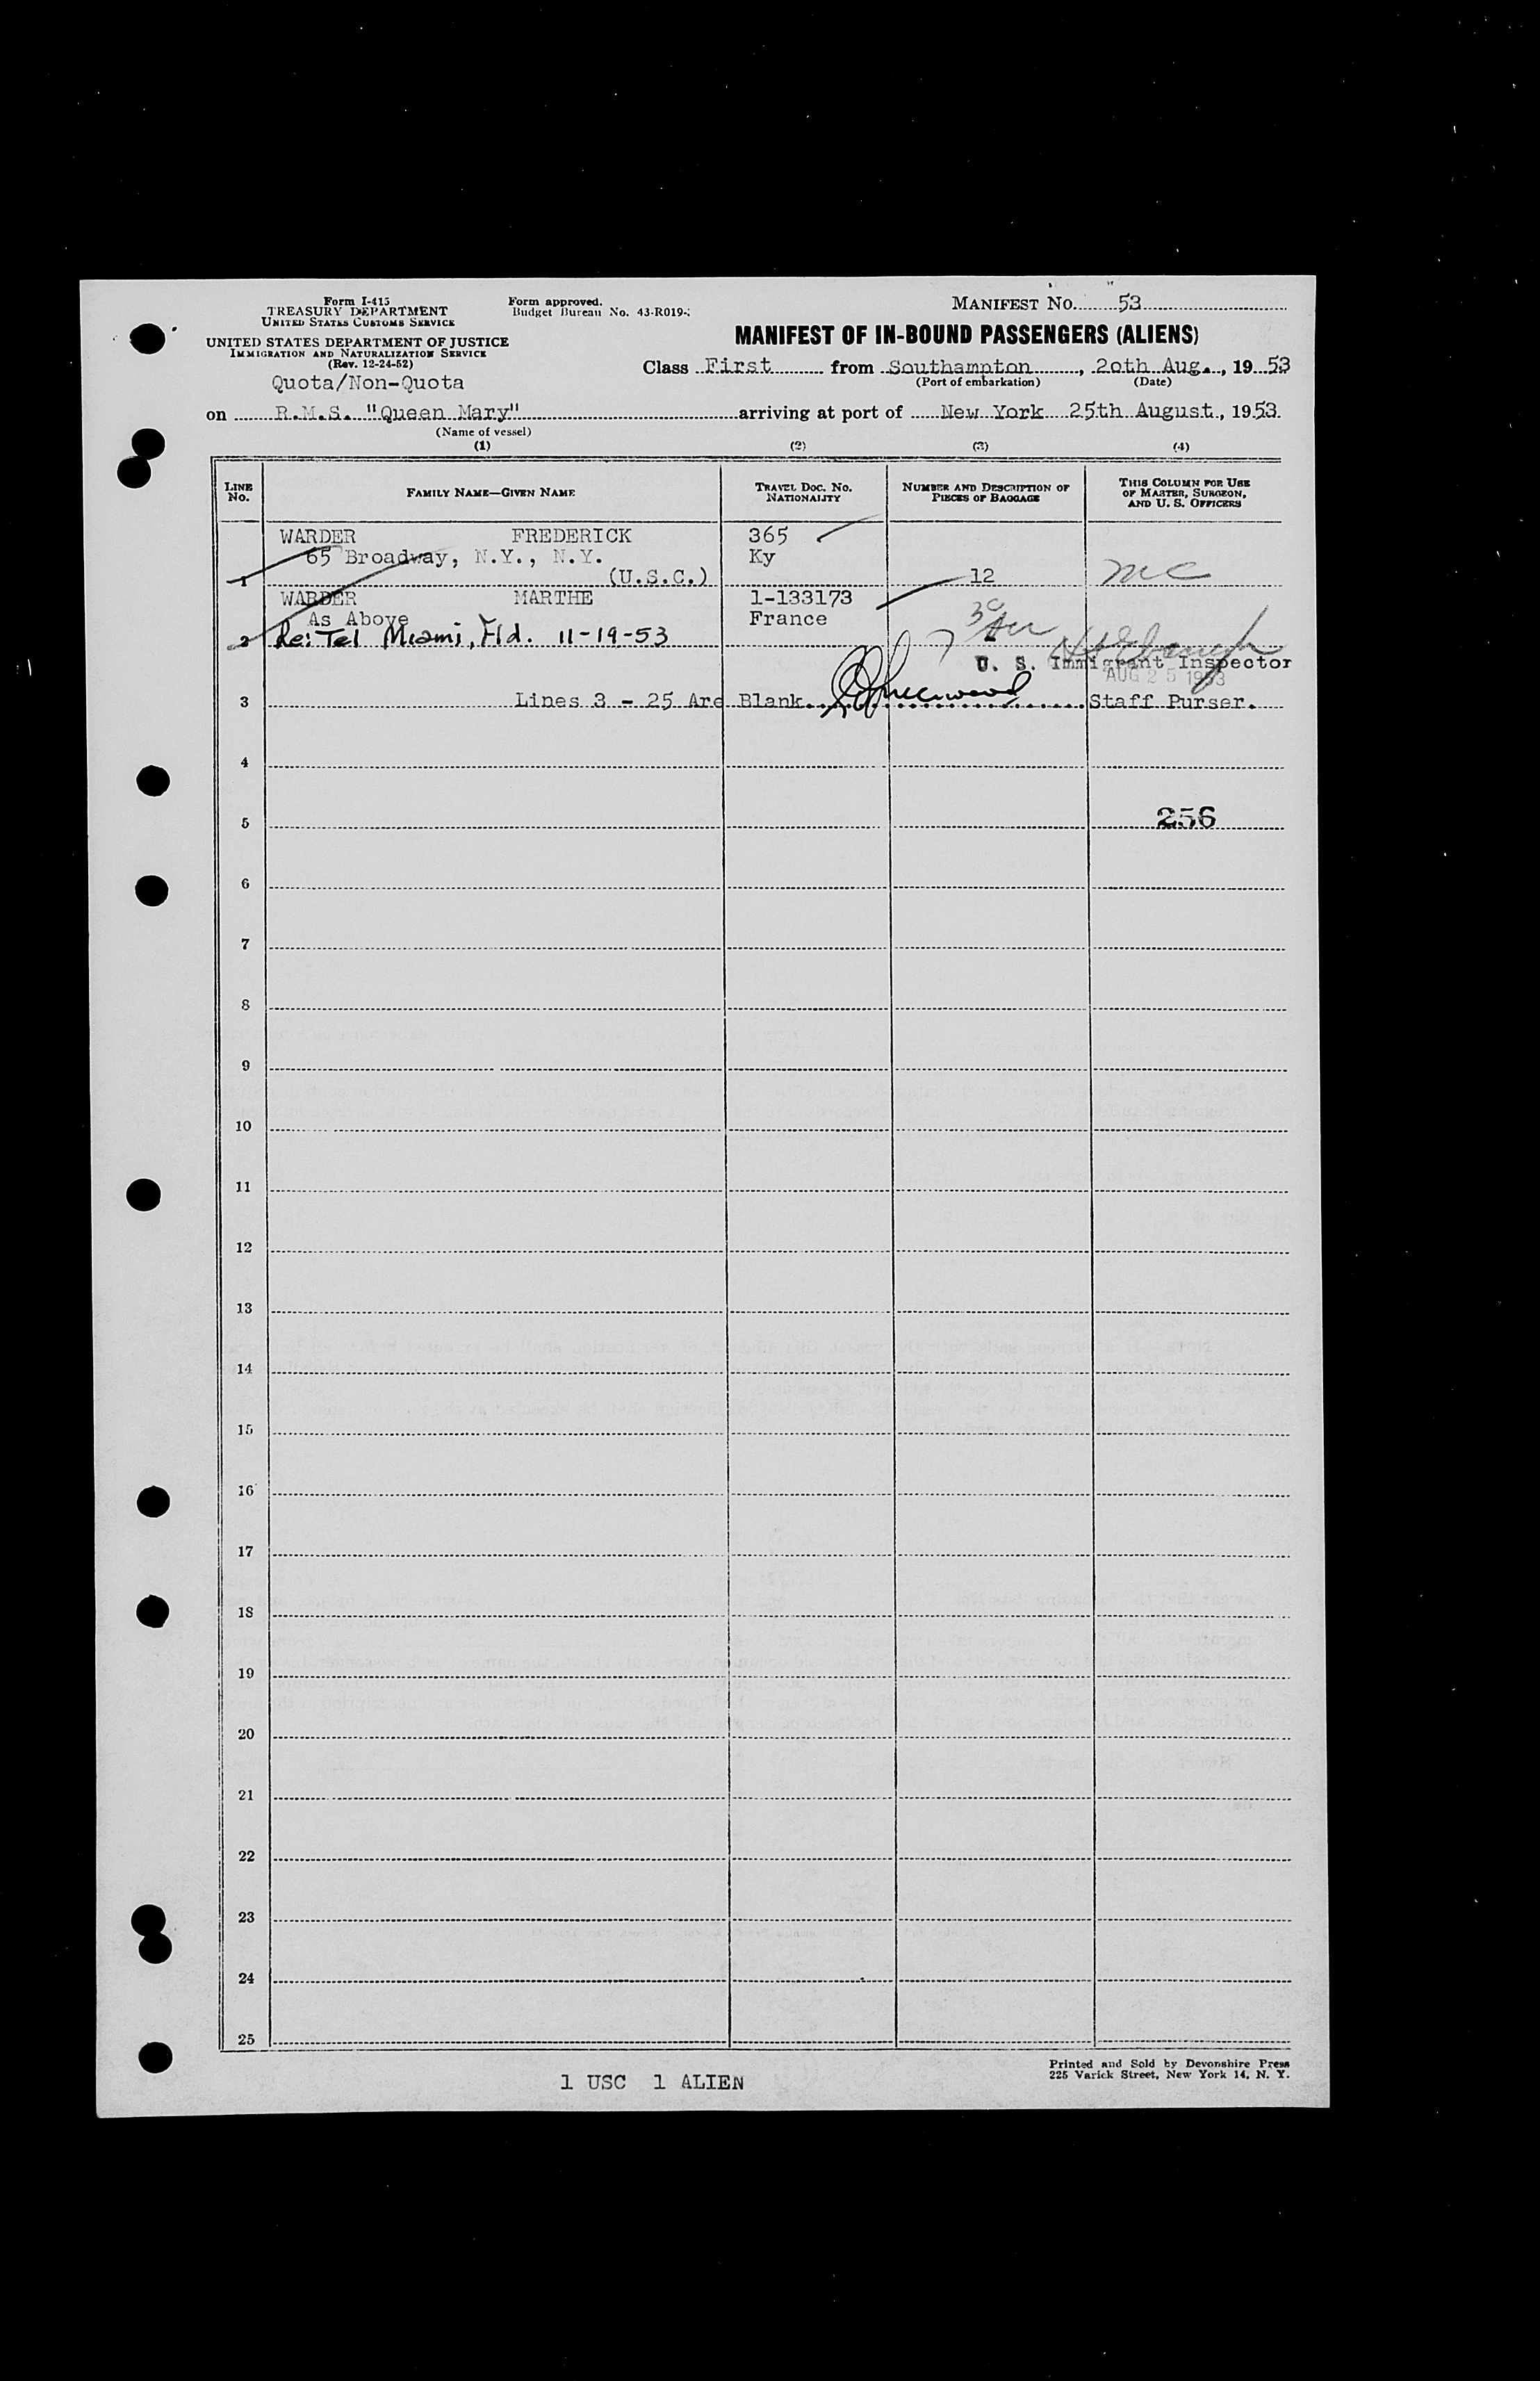 Form I-415
TREASURY DEPARTMENT
UNITED STATES CUSTOMS SERVICE
UNITED STATES DEPARTMENT OF JUSTICE
IMMIGRATION AND NATURALIZATION SERVICE
(Rev. 12-24-52)
Quota/Non-Quota
Form approved.
Budget Bureau No. 43-R019-
MANIFEST NO. 53
MANIFEST OF IN-BOUND PASSENGERS (ALIENS)
Class First from Southampton, 20th Aug., 19 53
(Port of embarkation) (Date)
on R.M.S. "Queen Mary" arriving at port of New York 25th August, 1953.
(Name of vessel)
(1) (2) (3) (4)
LINE NO. FAMILY NAME—GIVEN NAME TRAVEL DOC. NO. NATIONALITY NUMBER AND DESCRIPTION OF PIECES OF BAGGAGE THIS COLUMN FOR USE OF MASTER, SURGEON, AND U. S. OFFICERS
WARDER FREDERICK 365
65 Broadway, N.Y., N.Y. Ky
1 (U.S.C.) 12 mc
WARDER MARTHE 1-133173
As Above France
2 Re: Tel Miami, Fld. 11-19-53
U. S. Immigrant Inspector
AUG 25 1953
3 Lines 3 - 25 Are Blank. Staff Purser.
4
256
5
6
7
8
9
10
11
12
13
14
15
16
17
18
19
20
21
22
23
24
25
Printed and Sold by Devonshire Press
225 Varick Street, New York 14, N. Y.
1 USC 1 ALIEN